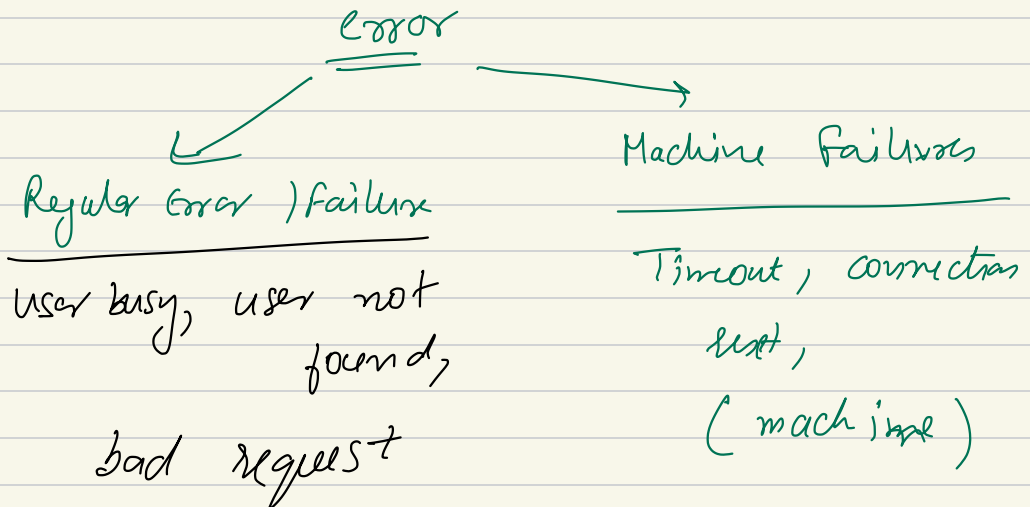 error
Regular Error / Failure
user busy, user not
found,
bad request
Machine Failures
Timeout, connection
reset,
(machine)